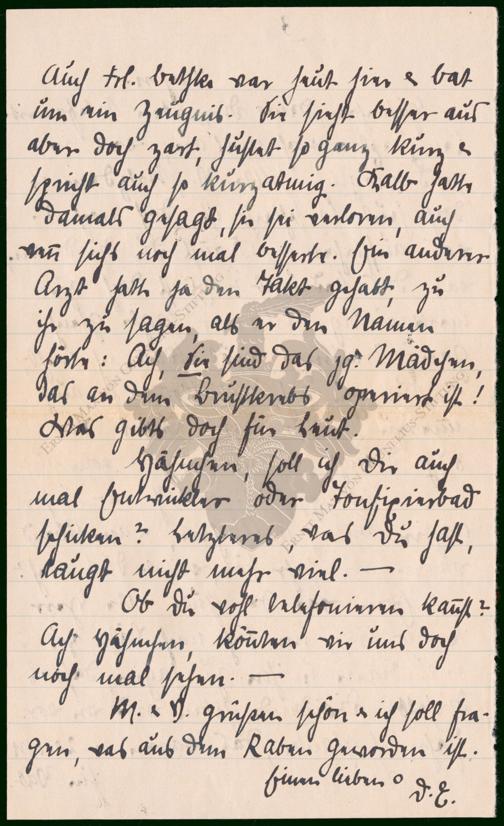 Auch Frl. Bethke war heut hier & bat
um ein Zeugnis. Sie sieht besser aus
aber doch zart, hustet so ganz kurz &
spricht auch so kurzatmig. Kalb hatte
damals gesagt, sie sei verloren, auch
wenn sichs noch mal besserte. Ein anderer
Arzt hatte ja den Takt gehabt, zu
ihr zu sagen, als er den Namen
hörte: Ach, Sie sind das jg. Mädchen,
das an dem Brustkrebs operiert ist!
Was gibts doch für Leut.
Hähnchen, soll ich Dir auch
mal Entwickler oder Tonfixierbad
schicken? Letzteres, was Du hast,
taugt nicht mehr viel. —
Ob Du wohl telefonieren kannst?
Ach Hähnchen, könnten wir uns doch
noch mal sehen. —
M. & V. grüßen schön & ich soll fra-
gen, was aus dem Raben geworden ist.
Einen lieben o
D. E.